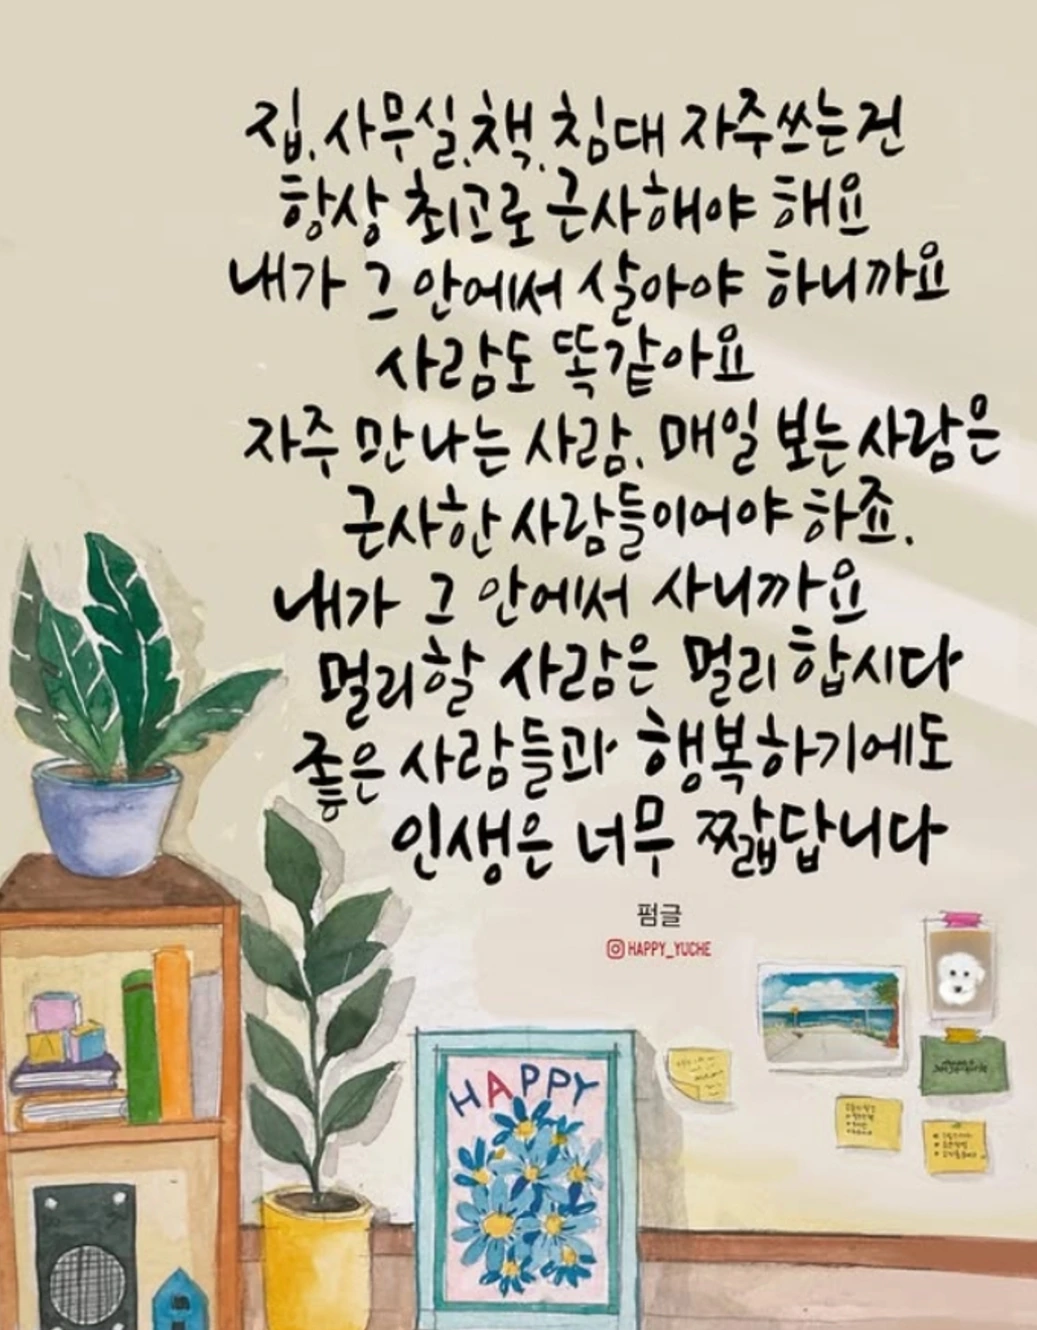 집.사무실.책.침대 자주쓰는건
항상 최고로 근사해야 해요
내가 그 안에서 살아야 하니까요
사람도 똑같아요
자주 만나는 사람. 매일 보는 사람은
근사한 사람들이어야 하죠.
내가 그 안에서 사니까요
멀리할 사람은 멀리 합시다
좋은 사람들과 행복하기에도
인생은 너무 짧답니다
펌글
HAPPY_YUCHE
HAPPY